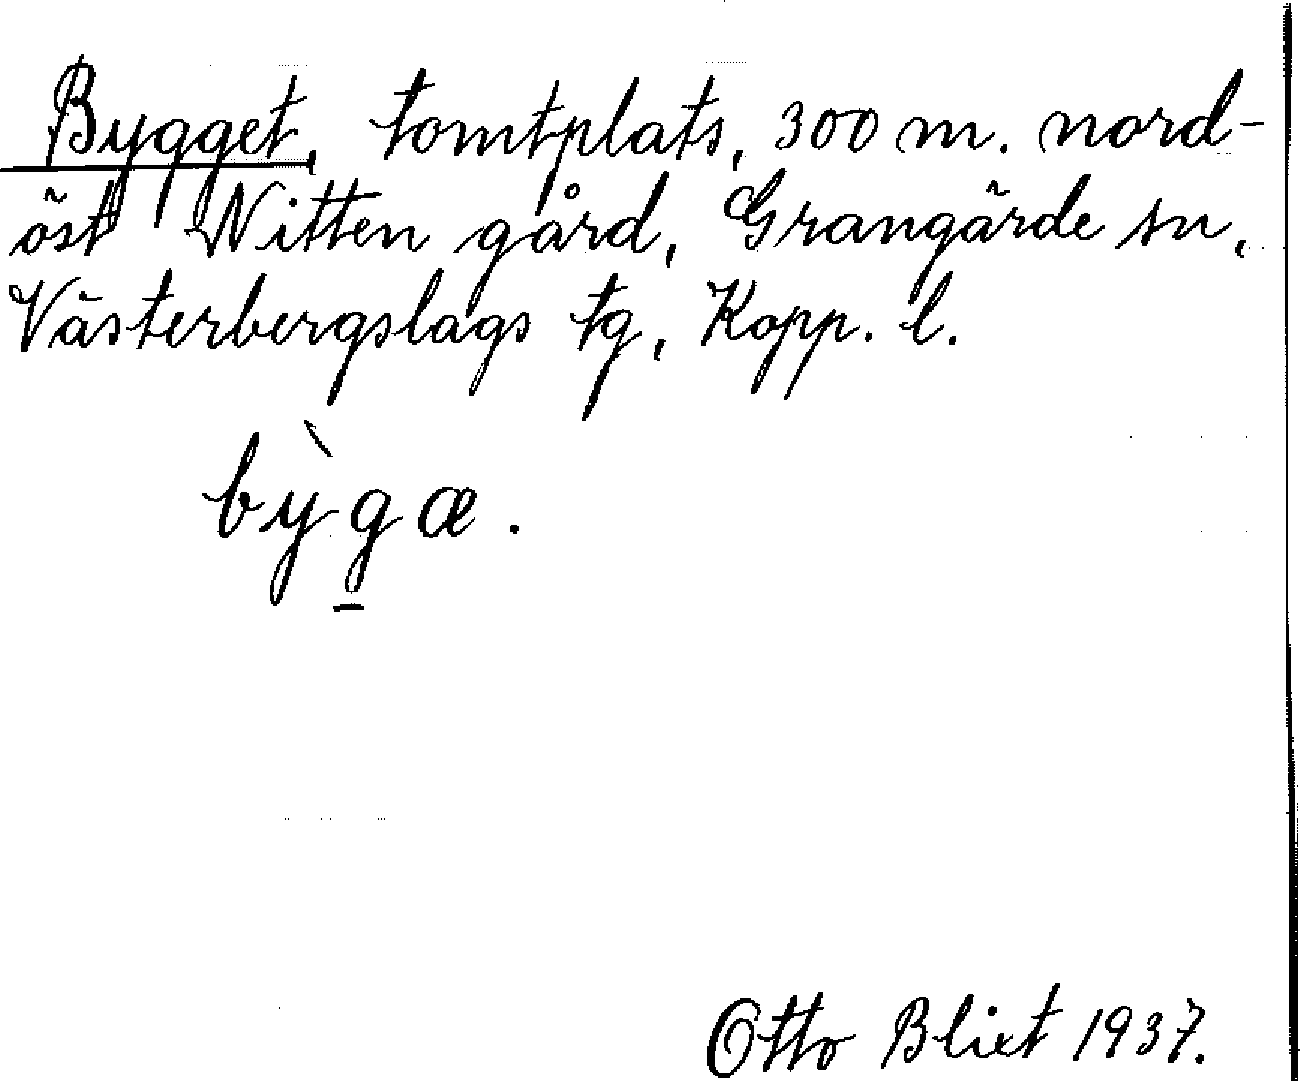 Bygget, tomtplats, 300 m. nord-
öst Nitten gård, Grangärde sn,
Västerbergslags tg, Kopp. l.
bỳgæ.
Otto Blixt 1937.